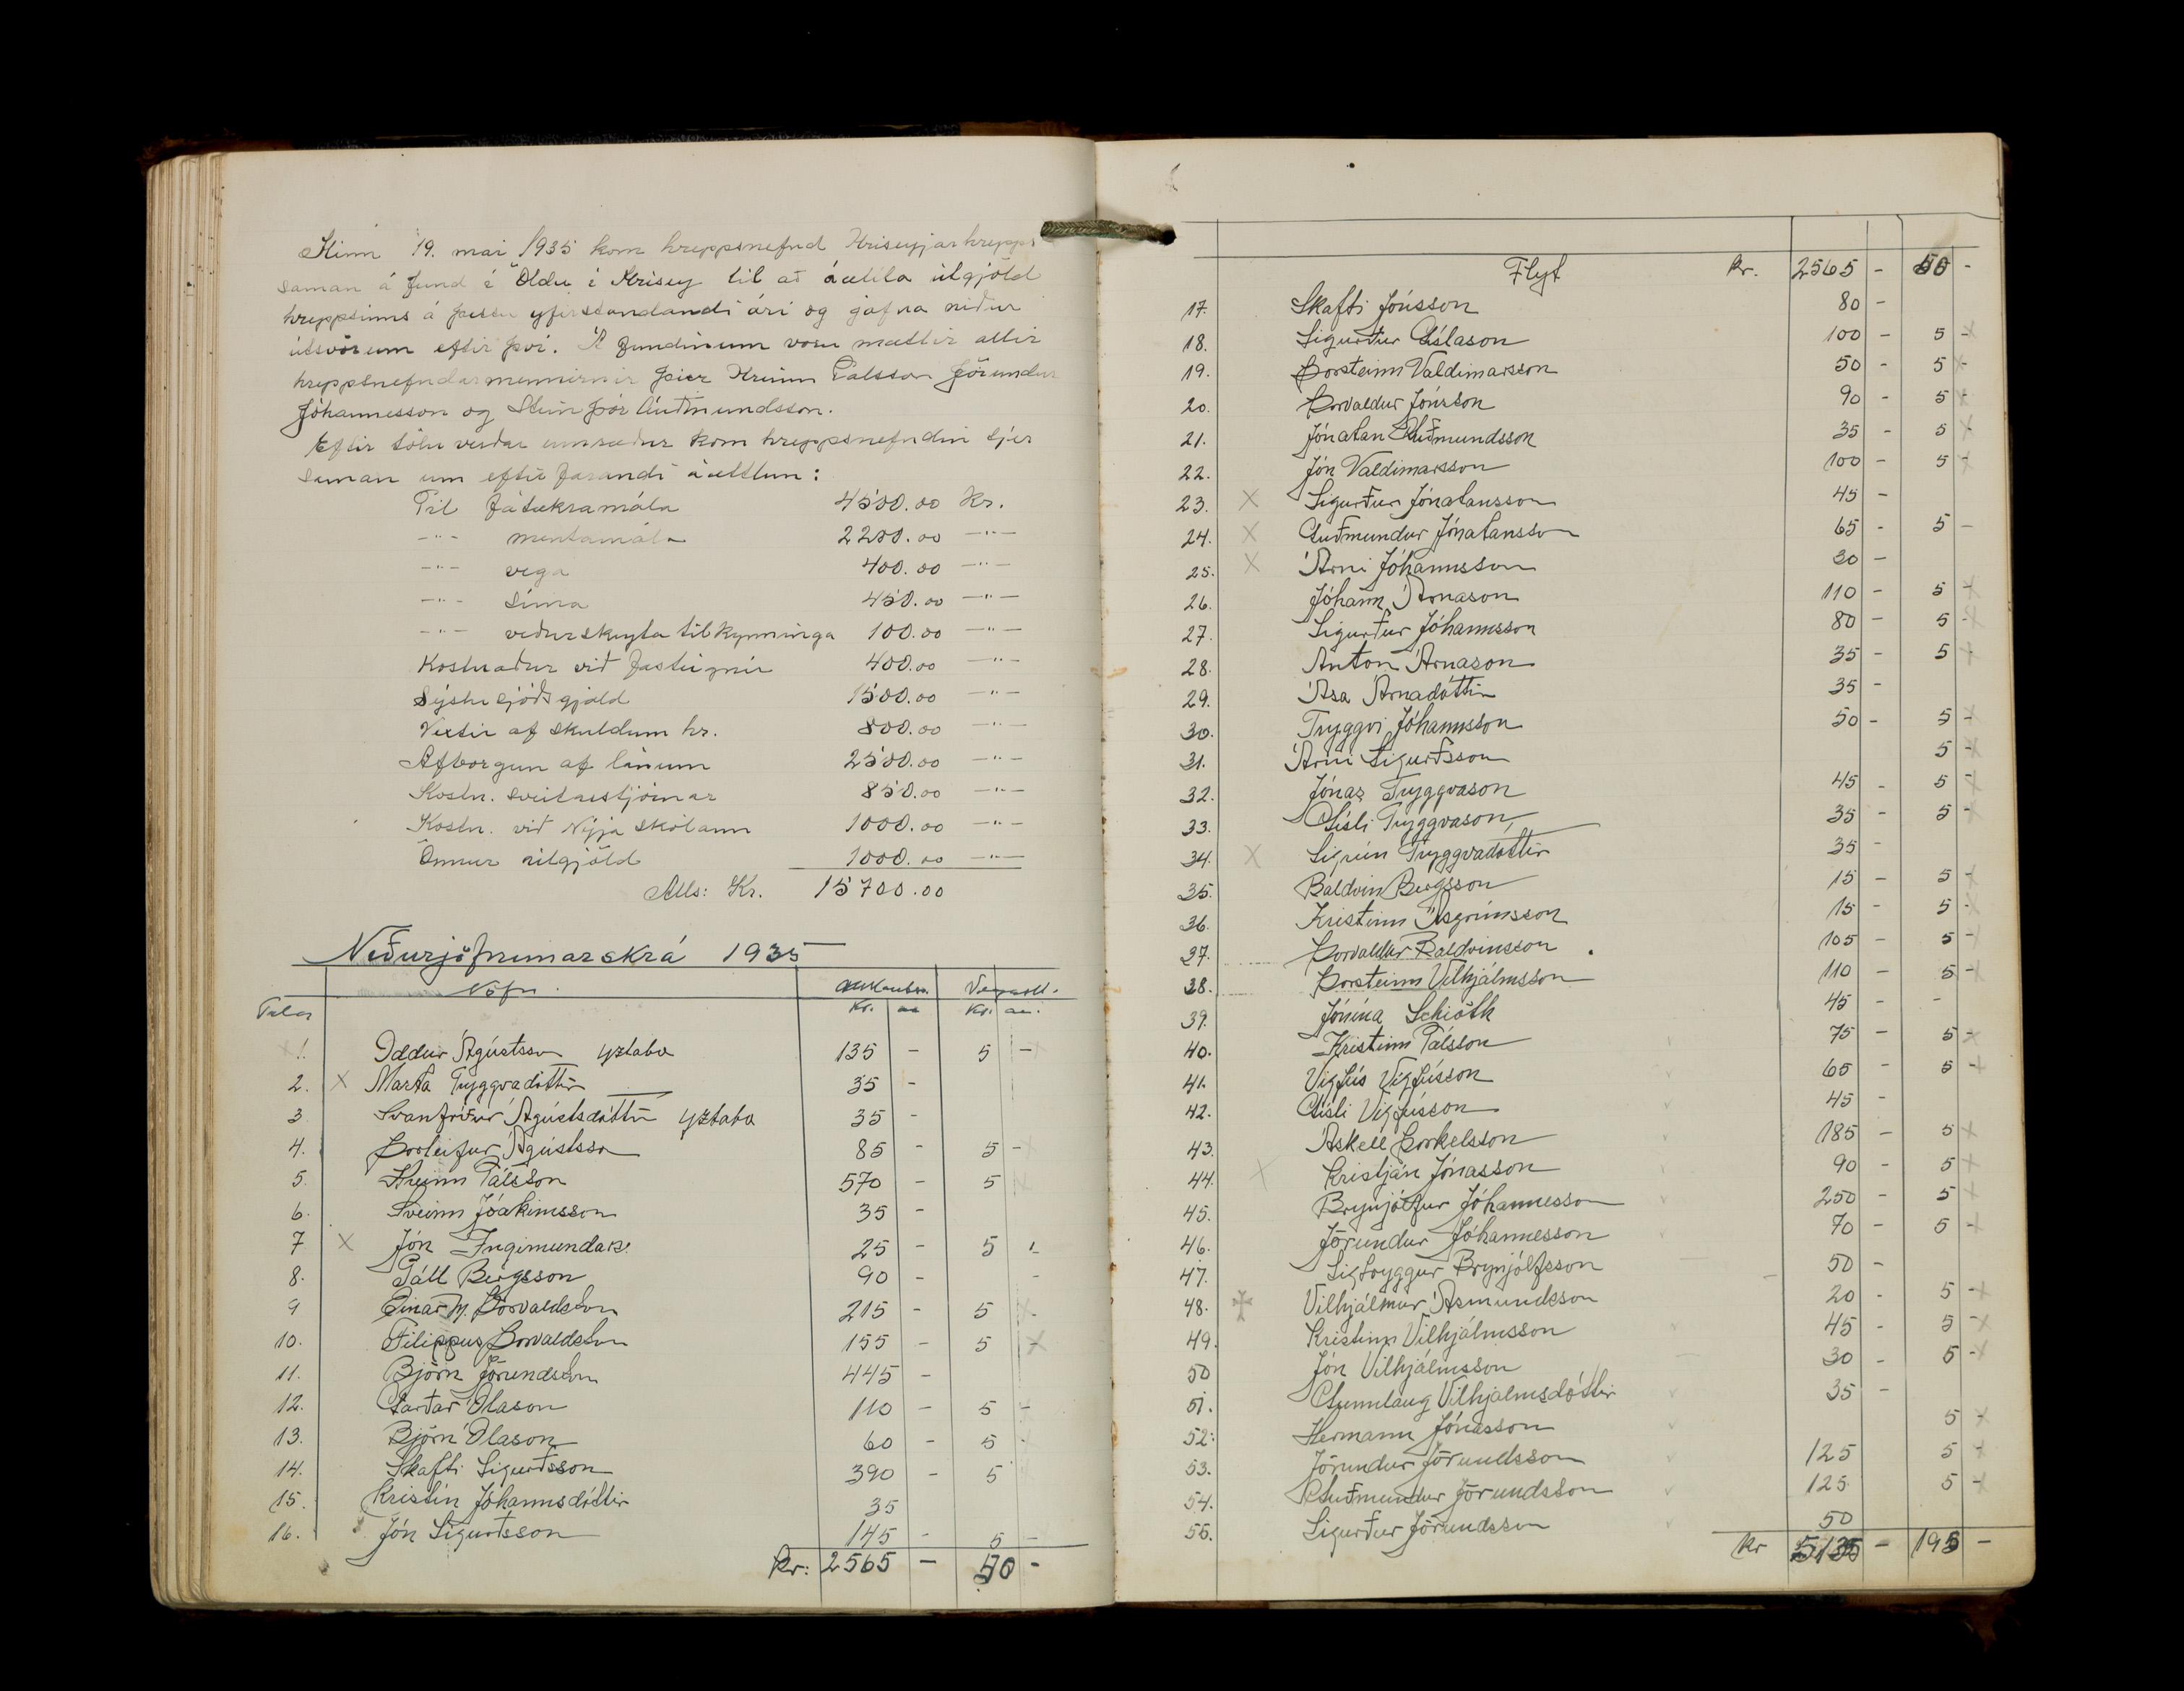 Hinn 19. mai 1935 kom hreppsnefnd Hriseyjarhrepps
saman á fund í Öldu í Hrisey til að áætila útgjöld
hreppsins á þessu yfirstandandi ári og jafna niður
útsvörum eftir því. Á fundinum voru mættir allir
hreppsnefndarmennirnir þeir Hreinn Pálsson Jörundur
Jóhannesson og Steinþór Guðmundsson.
Eftir tölu verðar umræður kom hreppsnefndin sjer
saman um eftir farandi áætlun:
Til fátækramála 4500.00 Kr.
-"- mentamála 2200.00 -"-
-"- vega 400.00 -"-
-"- síma 450.00 -"-
-"- veðurskeyta tilkynninga 100.00 -"-
Kostnaður við fasteignir 400.00 -"-
Sýslusjóðsgjald 1500.00 -"-
Vextir af skuldum hr. 800.00 -"-
Afborgun af lánum 2500.00 -"-
Kostn. sveitarstjórnar 850.00 -"-
Kostn. við Nýja skólann 1000.00 -"-
Önnur útgjöld 1000.00 -"-
Alls: Kr. 15700.00
Niðurjöfnunarskrá 1935
Nöfn.
Kr. au Kr. au.
1. Oddur Ágústsson yztabæ 135 - 5 -
2. X Marta Tryggvadóttir 35 -
3 Svanfríður Ágústsdóttir yztabæ 35 -
4. Þorleifur Ágústsson 85 - 5 -
5. Hreinn Pálsson 570 - 5
6. Sveinn Jóakimsson 35 -
7 X Jón Ingimundars. 25 - 5 -
8. Páll Bergsson 90 - -
9 Einar M. Þorvaldsson 215 - 5 -
10. Filippus Þorvaldsson 155 - 5 -
11. Björn Jörundsson 445 -
12. Garðar Ólason 110 - 5 -
13. Björn Ólason 60 - 5
14. Skafti Sigurðsson 390 - 5
15. Kristín Jóhannsdóttir 35
16. Jón Sigurðsson 145 - 5 -
Kr: 2565 - 50 -
Flyt Kr. 2565 - 50 -
17. Skafti Jónsson 80 -
18. Sigurður Gíslason 100 - 5 - X
19. Þorsteinn Valdimarsson 50 - 5 - X
20. Þorvaldur Jónsson 90 - 5 - X
21. Jónatan Guðmundsson 35 - 5 - X
22. Jón Valdimarsson 100 - 5 - X
23. X Sigurður Jónatansson 45 -
24. X Guðmundur Jónatansson 65 - 5 -
25. X Árni Jóhannsson 30 -
26. Jóhann Árnason 110 - 5 - X
27. Sigurður Jóhannsson 80 - 5 - X
28. Anton Árnason 35 - 5 - X
29. Ása Árnadóttir 35 -
30. Tryggvi Jóhannsson 50 - 5 - X
31. Árni Sigurðsson 5 - X
32. Jónas Tryggvason 45 - 5 - X
33. Gísli Tryggvason, 35 - 5 - X
34. X Sigrún Tryggvadóttir 35 -
35. Baldvin Bergsson 15 - 5 - X
36. Kristinn Ásgrímsson 15 - 5 - X
37. Þorvaldur Baldvinsson 105 - 5 - X
38. Þorsteinn Vilhjálmsson 110 - 5 - X
39. Jónína Schiöth 45 - -
40. Kristinn Pálsson 75 - 5 - X
41. Vigfús Vigfússon 65 - 5 - X
42. Gísli Vigfússon 45 -
43. Áskell Þorkelsson 185 - 5 X
44. X Kristján Jónasson 90 - 5 X
45. Brynjólfur Jóhannesson 250 - 5 X
46. Jörundur Jóhannesson 70 - 5 - X
47. Sigtryggur Brynjólfsson 50 -
48. Vilhjálmur Ásmundsson 20 - 5 - X
49. Kristinn Vilhjálmsson 45 - 5 - X
50 Jón Vilhjálmsson 30 - 5 - X
51. Gunnlaug Vilhjálmsdóttir 35 -
52. Hermann Jónasson 5 - X
53. Jörundur Jörundsson 125 5 - X
54. Guðmundur Jörundsson 125 5 - X
55. Sigurður Jörundsson 50
Kr 5135 - 195 -